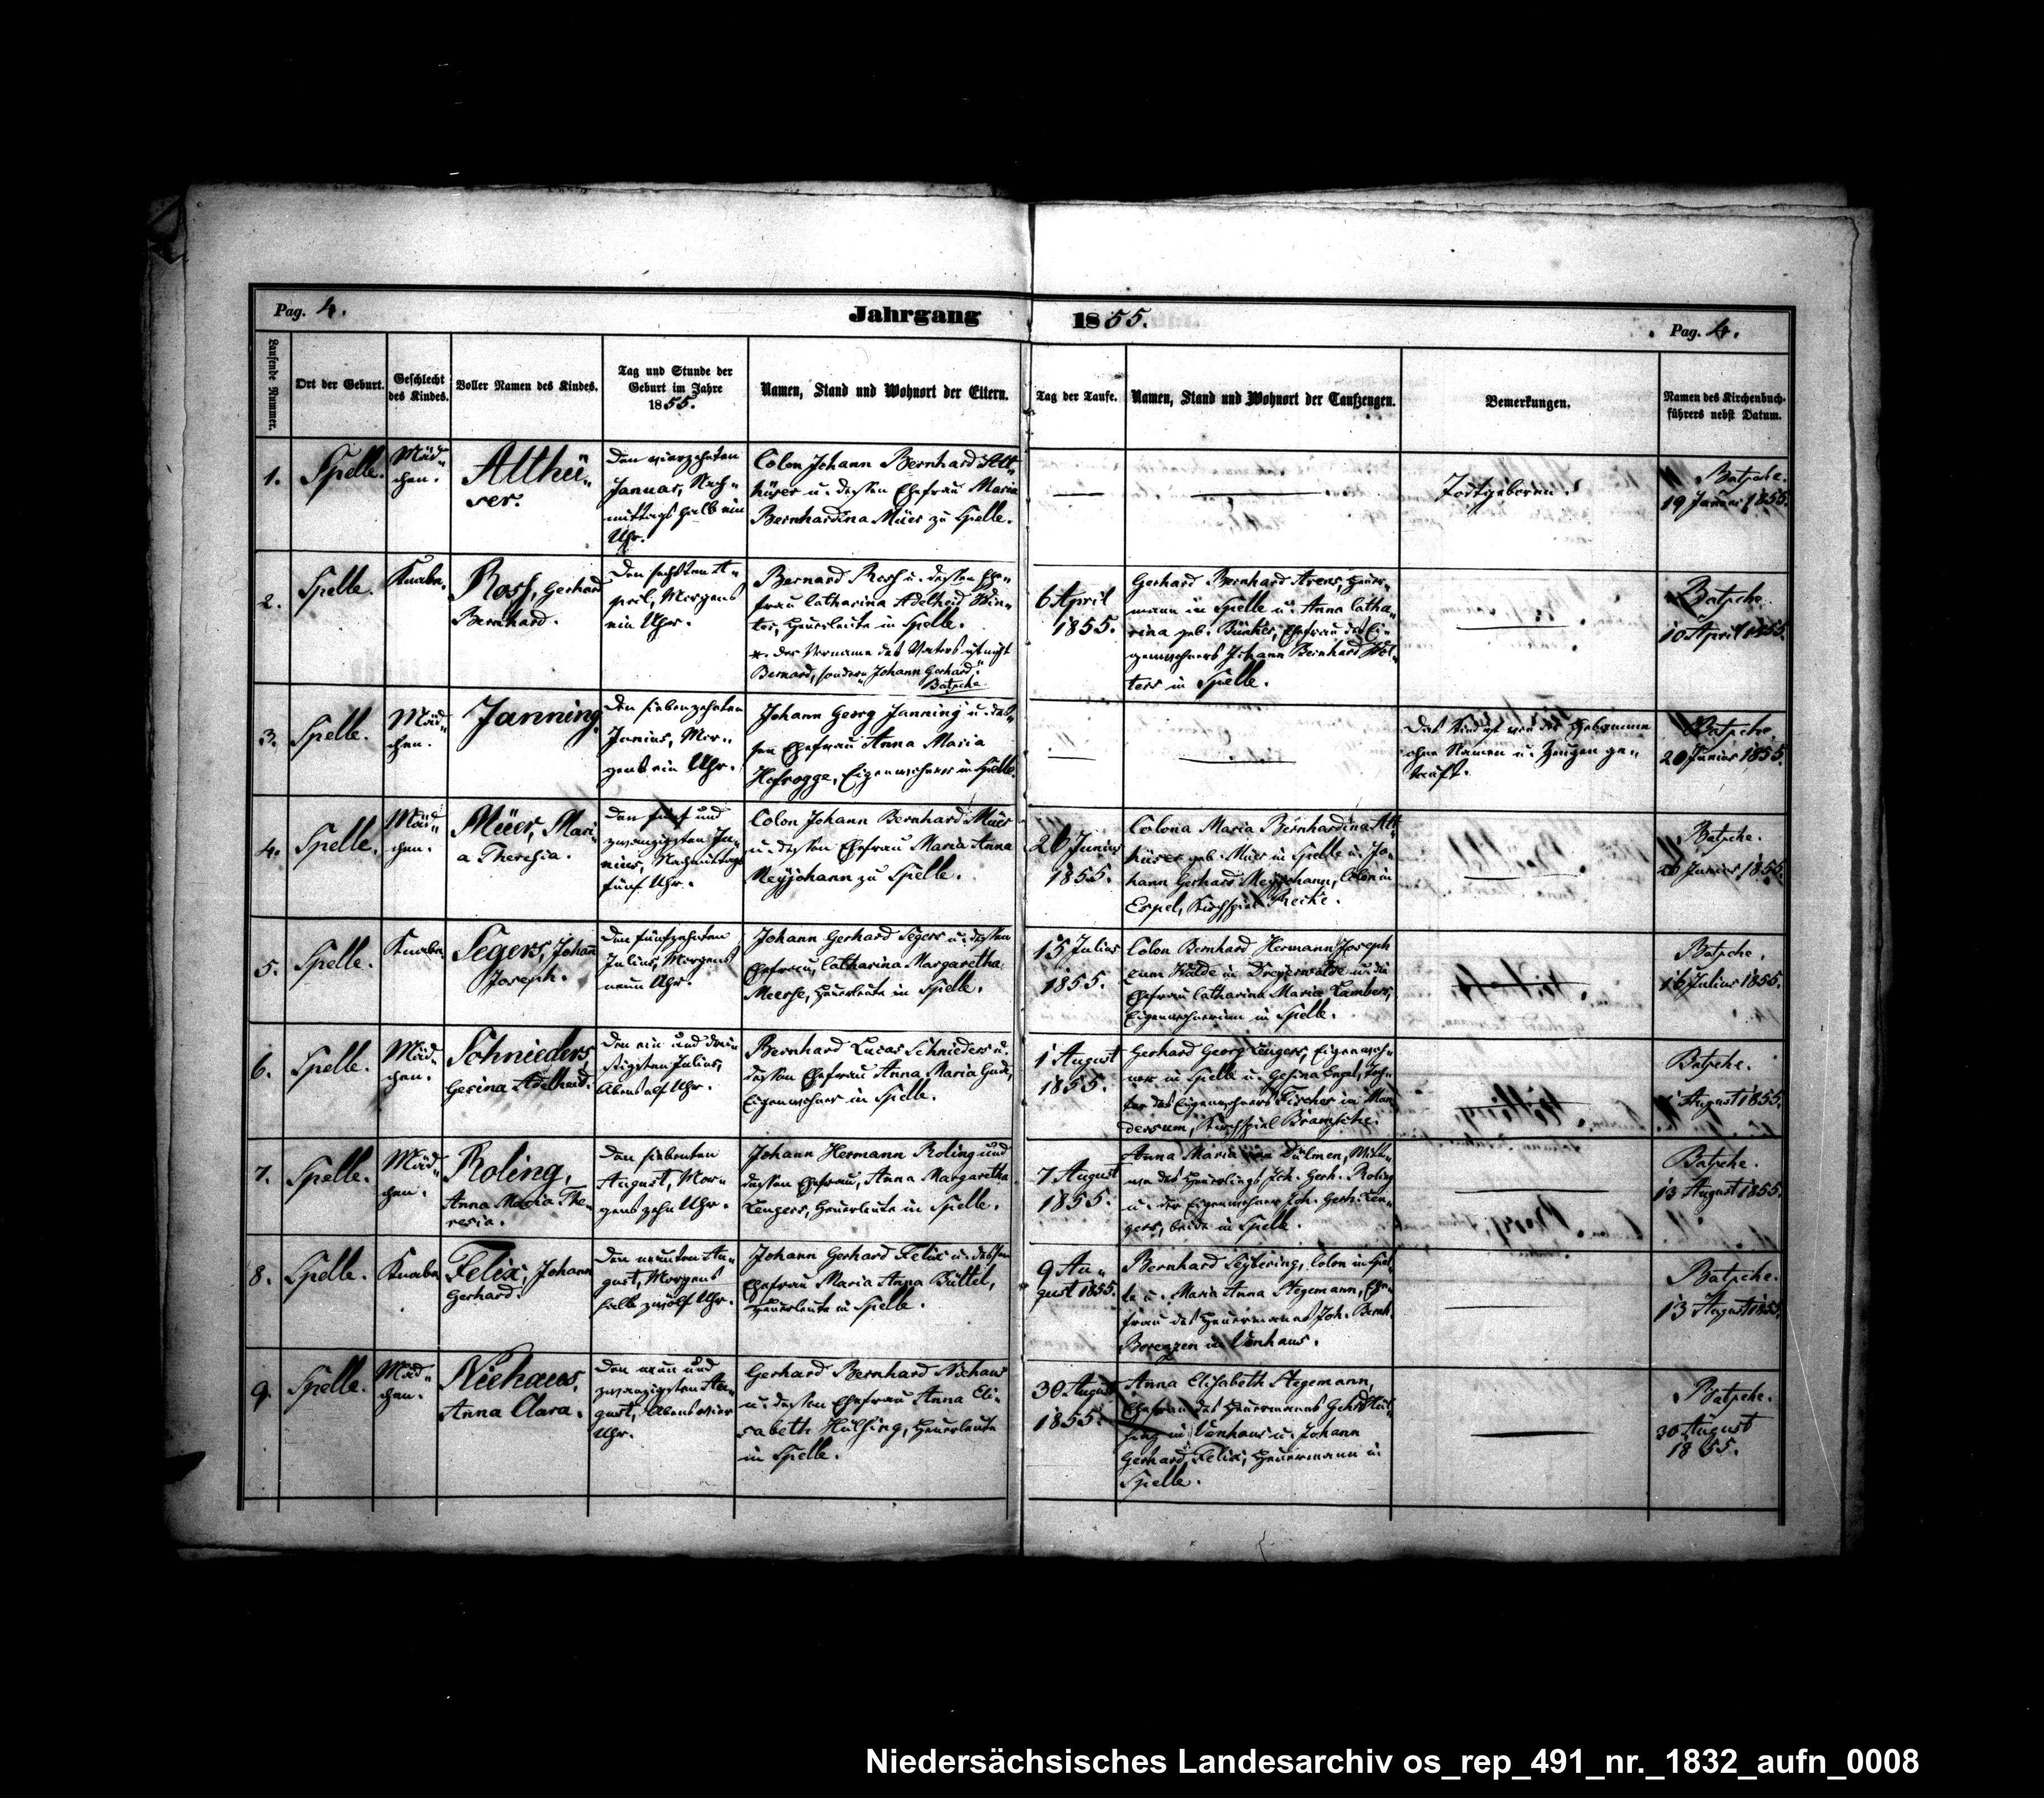 Pag. 4.
Jahrgang 1855.
Pag. 4.
Laufende Nummer.
Ort der Geburt.
Geschlecht
des Kindes.
Voller Namen des Kindes.
Tag und Stunde der
Geburt im Jahre
1855.
Namen, Stand und Wohnort der Eltern.
Tag der Taufe.
Namen, Stand und Wohnort der Taufzeugen.
Bemerkungen.
Namen des Kirchenbuch-
führers nebst Datum.
1.
Spelle.
Mäd„
chen.
Althü„
ser.
Den vierzehnten
Januar, Nach„
mittags halb ein
Uhr.
Colon Johann Bernhard Alt„
hüser u. dessen Ehefrau Maria
Bernhardina Müer zu Spelle.
Todtgeboren.
Batsche.
19 Januar 1855.
2.
Spelle.
Knabe.
Ross, Gerhard
Bernhard.
Den sechsten A„
pril, Morgens
ein Uhr.
Bernard Ross u. dessen Ehe„
frau Catharina Adelheid Win„
ter, Heuerleute in Spelle.
*. Der Vorname des Vaters ist nicht
Bernard, sondern „Johann Gerhard.“
Batsche
6 April
1855.
Gerhard Bernhard Arens, Heuer„
mann in Spelle u. Anna Catha„
rina geb. Bünker, Ehefrau des Ei„
genwohners Johann Bernhard Wol„
ters in Spelle.
Batsche.
10 April 1855.
3.
Spelle.
Mäd„
chen.
Janning.
Den siebenzehnten
Junius, Mor„
gens ein Uhr.
Johann Georg Janning u. des„
sen Ehefrau Anna Maria
Hofrogge, Eigenwohner in Spelle.
Das Kind ist von der Hebamme
ohne Namen u. Zeugen ge„
tauft.
Batsche
20 Junius 1855.
4.
Spelle.
Mäd„
chen.
Müer, Mari„
a Theresia.
Den fünf und
zwanzigsten Ju„
nius, Nachmittags
fünf Uhr.
Colon Johann Bernhard Müer
u. dessen Ehefrau Maria Anna
Meyjohann zu Spelle.
26 Junius
1855.
Colona Maria Bernhardina Alt„
hüser geb. Müer in Spelle u. Jo„
hann Gerhard Meyjohann, Colon in
Espel, Kirchspiel Recke.
Batsche.
26 Junius 1855.
5.
Spelle.
Knabe.
Segers, Johann
Joseph.
Den fünfzehnten
Julius, Morgens
neun Uhr.
Johann Gerhard Segers u. dessen
Ehefrau, Catharina Margaretha
Meerse, Heuerleute in Spelle.
15 Julius
1855.
Colon Bernhard Hermann Joseph
zum Walde in Dreyerwalde u. die
Ehefrau Catharina Maria Lambers,
Eigenwohnerinn in Spelle.
Batsche.
16 Julius 1855.
6.
Spelle.
Mäd„
chen.
Schnieders
Gesina Adelheid.
Den ein und drei„
ßigsten Julius,
Abends elf Uhr.
Bernhard Lucas Schnieders u.
dessen Ehefrau Anna Maria
Eigenwohner in Spelle.
1 August
1855.
Gerhard Georg Lengers, Eigenwoh„
ner in Spelle u. Gesina Engel, Toch„
ter des Eigenwohners Fischer in Mun„
dersum, Kirchspiel Bramsche.
Batsche.
1 August 1855.
7.
Spelle.
Mäd„
chen.
Roling,
Anna Maria The„
resia.
Den siebenten
August, Mor„
gens zehn Uhr.
Johann Hermann Roling und
dessen Ehefrau, Anna Margaretha
Lengers, Heuerleute in Spelle.
7 August
1855.
Anna Maria von Dülmen, Witt„
we des Heuerlings Joh. Gerh. Roling
u. der Eigenwohner Joh. Gerh. Len„
gers, beide in Spelle.
Batsche.
13 August 1855.
8.
Spelle.
Knabe.
Felix, Johann
Gerhard.
Den neunten Au„
gust, Morgens
halb zwölf Uhr.
Johann Gerhard Felix u. dessen
Ehefrau Maria Anna Büttel,
Heuerleute in Spelle.
9 Au„
gust 1855.
Bernhard Seybering, Colon in Spel„
le u. Maria Anna Stegemann, Ehe„
frau des Heuermannes Joh. Bernh.
Berenzen in Venhaus.
Batsche.
13 August 1855.
9.
Spelle.
Mäd„
chen.
Niehaus,
Anna Clara.
Den neun und
zwanzigsten Au„
gust, Abends vier
Uhr.
Gerhard Bernhard Niehaus
u. dessen Ehefrau Anna Eli„
sabeth Hülsing, Heuerleute
in Spelle.
30 August
1855.
Anna Elisabeth Stegemann,
Ehefrau des Heuermanns Gerhd Hül„
sing in Venhaus u. Johann
Gerhard Felix, Heuermann in
Spelle.
Batsche.
30 August
1855.
Niedersächsisches Landesarchiv os_rep_491_nr._1832_aufn_0008